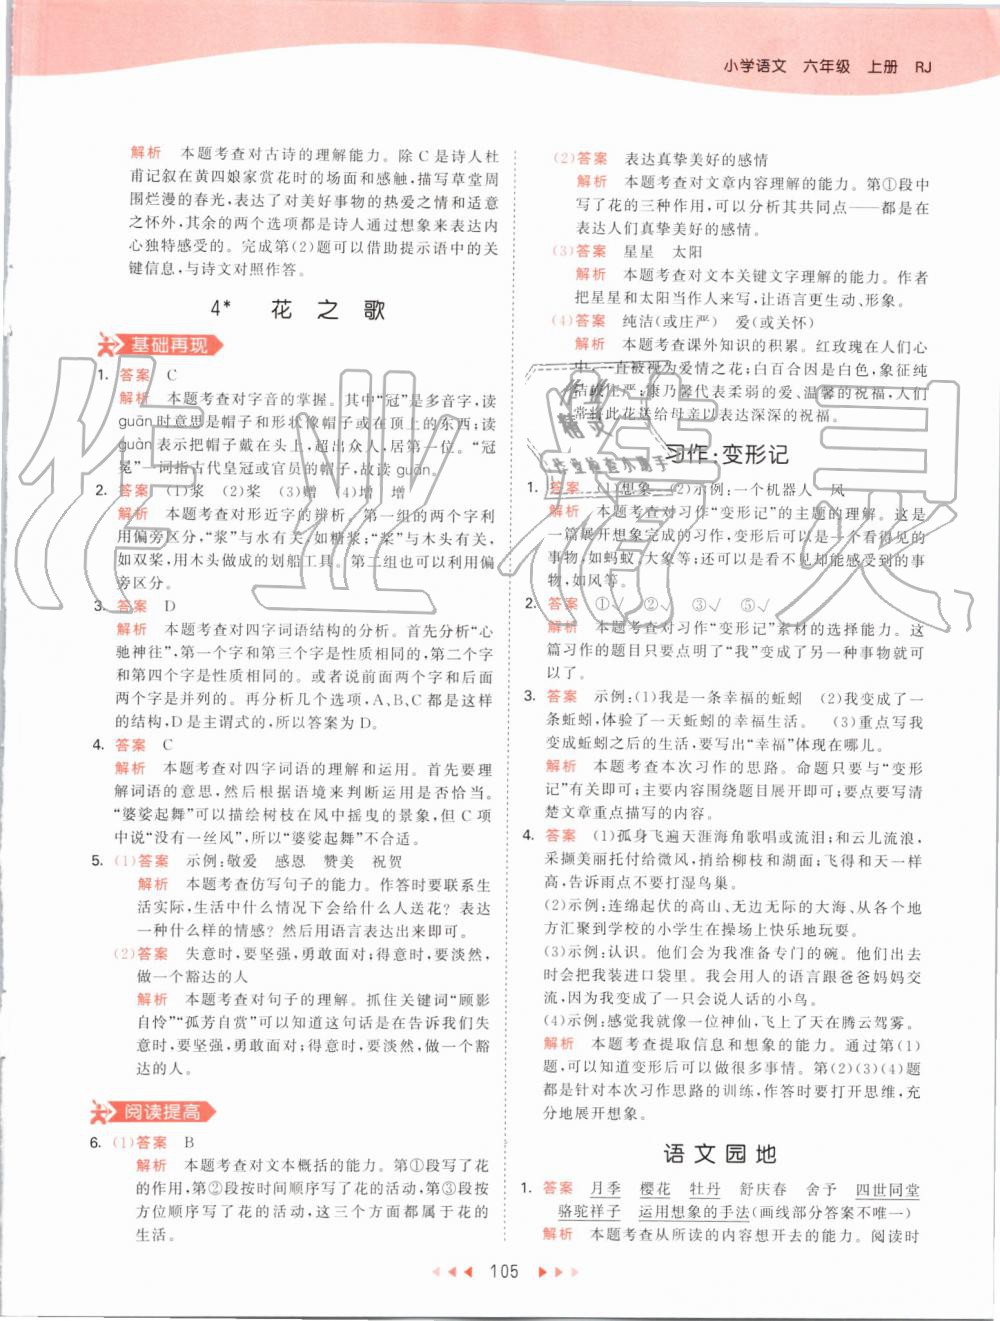 小学语文 六年级 上册 RJ
解析 本题考查对古诗的理解能力。除C是诗人杜
甫记叙在黄四娘家赏花时的场面和感触,描写草堂周
围烂漫的春光,表达了对美好事物的热爱之情和适意
之怀外,其余的两个选项都是诗人通过想象来表达内
心独特感受的。完成第(2)题可以借助提示语中的关
键信息,与诗文对照作答。
4* 花之歌
基础再现
1. 答案 C
解析 本题考查对字音的掌握。其中“冠”是多音字,读
guān时意思是帽子和形状像帽子或在顶上的东西;读
guàn表示把帽子戴在头上,超出众人,居第一位。“冠
冕”一词指古代皇冠或官员的帽子,故读guān。
2. 答案 (1)浆 (2)桨 (3)赠 (4)增 增
解析 本题考查对形近字的辨析。第一组的两个字利
用偏旁区分,“浆”与水有关,如糖浆;“桨”与木头有关,
如双桨,用木头做成的划船工具。第二组也可以利用偏
旁区分。
3. 答案 D
解析 本题考查对四字词语结构的分析。首先分析“心
驰神往”,第一个字和第三个字是性质相同的,第二个字
和第四个字是性质相同的。或者说前面两个字和后面
两个字是并列的。再分析几个选项,A、B、C都是这样
的结构,D是主谓式的,所以答案为D。
4. 答案 C
解析 本题考查对四字词语的理解和运用。首先要理
解词语的意思,然后根据语境来判断运用是否恰当。
“婆娑起舞”可以描绘树枝在风中摇曳的景象,但C项
中说“没有一丝风”,所以“婆娑起舞”不合适。
5. (1)答案 示例:敬爱 感恩 赞美 祝贺
解析 本题考查仿写句子的能力。作答时要联系生
活实际,生活中什么情况下会给什么人送花?表达
一种什么样的情感?然后用语言表达出来即可。
(2)答案 失意时,要坚强,勇敢面对;得意时,要淡然,
做一个豁达的人
解析 本题考查对句子的理解。抓住关键词“顾影
自怜”“孤芳自赏”可以知道这句话是在告诉我们失
意时,要坚强,勇敢面对;得意时,要淡然,做一个豁
达的人。
阅读提高
6. (1)答案 B
解析 本题考查对文本概括的能力。第①段写了花
的作用,第②段按时间顺序写了花的活动,第③段按
方位顺序写了花的活动,这三个方面都属于花的
生活。
(2)答案 表达真挚美好的感情
解析 本题考查对文章内容理解的能力。第①段中
写了花的三种作用,可以分析其共同点——都是在
表达人们真挚美好的感情。
(3)答案 星星 太阳
解析 本题考查对文本关键文字理解的能力。作者
把星星和太阳当作人来写,让语言更生动、形象。
(4)答案 纯洁(或庄严) 爱(或关怀)
解析 本题考查课外知识的积累。红玫瑰在人们心
中一直被视为爱情之花;白百合因是百合科,象征纯
洁或庄严;康乃馨代表柔弱的爱、温馨的祝福,人们
常将此花送给母亲以表达深深的祝福。
习作:变形记
1. 答案 (1)想象 (2)示例:一个机器人 风
解析 本题考查对习作“变形记”的主题的理解。这是
一篇展开想象完成的习作,变形后可以是一个看得见的
事物,如蚂蚁、大象等;还可以是看不见却能感受到的事
物,如风等。
2. 答案 ①√ ②√ ③√ ⑤√
解析 本题考查对习作“变形记”素材的选择能力。这
篇习作的题目只要点明了“我”变成了另一种事物就可
以了。
3. 答案 示例:(1)我是一条幸福的蚯蚓 (2)我变成了一
条蚯蚓,体验了一天蚯蚓的幸福生活。 (3)重点写我
变成蚯蚓之后的生活,要写出“幸福”体现在哪儿。
解析 本题考查本次习作的思路。命题只要与“变形
记”有关即可;主要内容围绕题目展开即可;要点要写清
楚文章重点描写的内容。
4. 答案 (1)孤身飞遍天涯海角歌唱或流泪;和云儿流浪,
采撷美丽托付给微风,捎给柳枝和湖面;飞得和天一样
高,告诉雨点不要打湿鸟巢。
(2)示例:连绵起伏的高山、无边无际的大海、从各个地
方汇聚到学校的小学生在操场上快乐地玩耍。
(3)示例:认识。他们会为我准备专门的碗。他们出去
时会把我装进口袋里。我会用人的语言跟爸爸妈妈交
流,因为我变成了一只会说人话的小鸟。
(4)示例:感觉我就像一位神仙,飞上了天在腾云驾雾。
解析 本题考查提取信息和想象的能力。通过第(1)
题,可以知道变形后可以做很多事情。第(2)(3)(4)题
都是针对本次习作思路的训练,作答时要打开思维,充
分地展开想象。
语文园地
1. 答案 月季 樱花 牡丹 舒庆春 舍予 四世同堂
骆驼祥子 运用想象的手法(画线部分答案不唯一)
解析 本题考查从所读的内容想开去的能力。阅读时
105
作业精灵